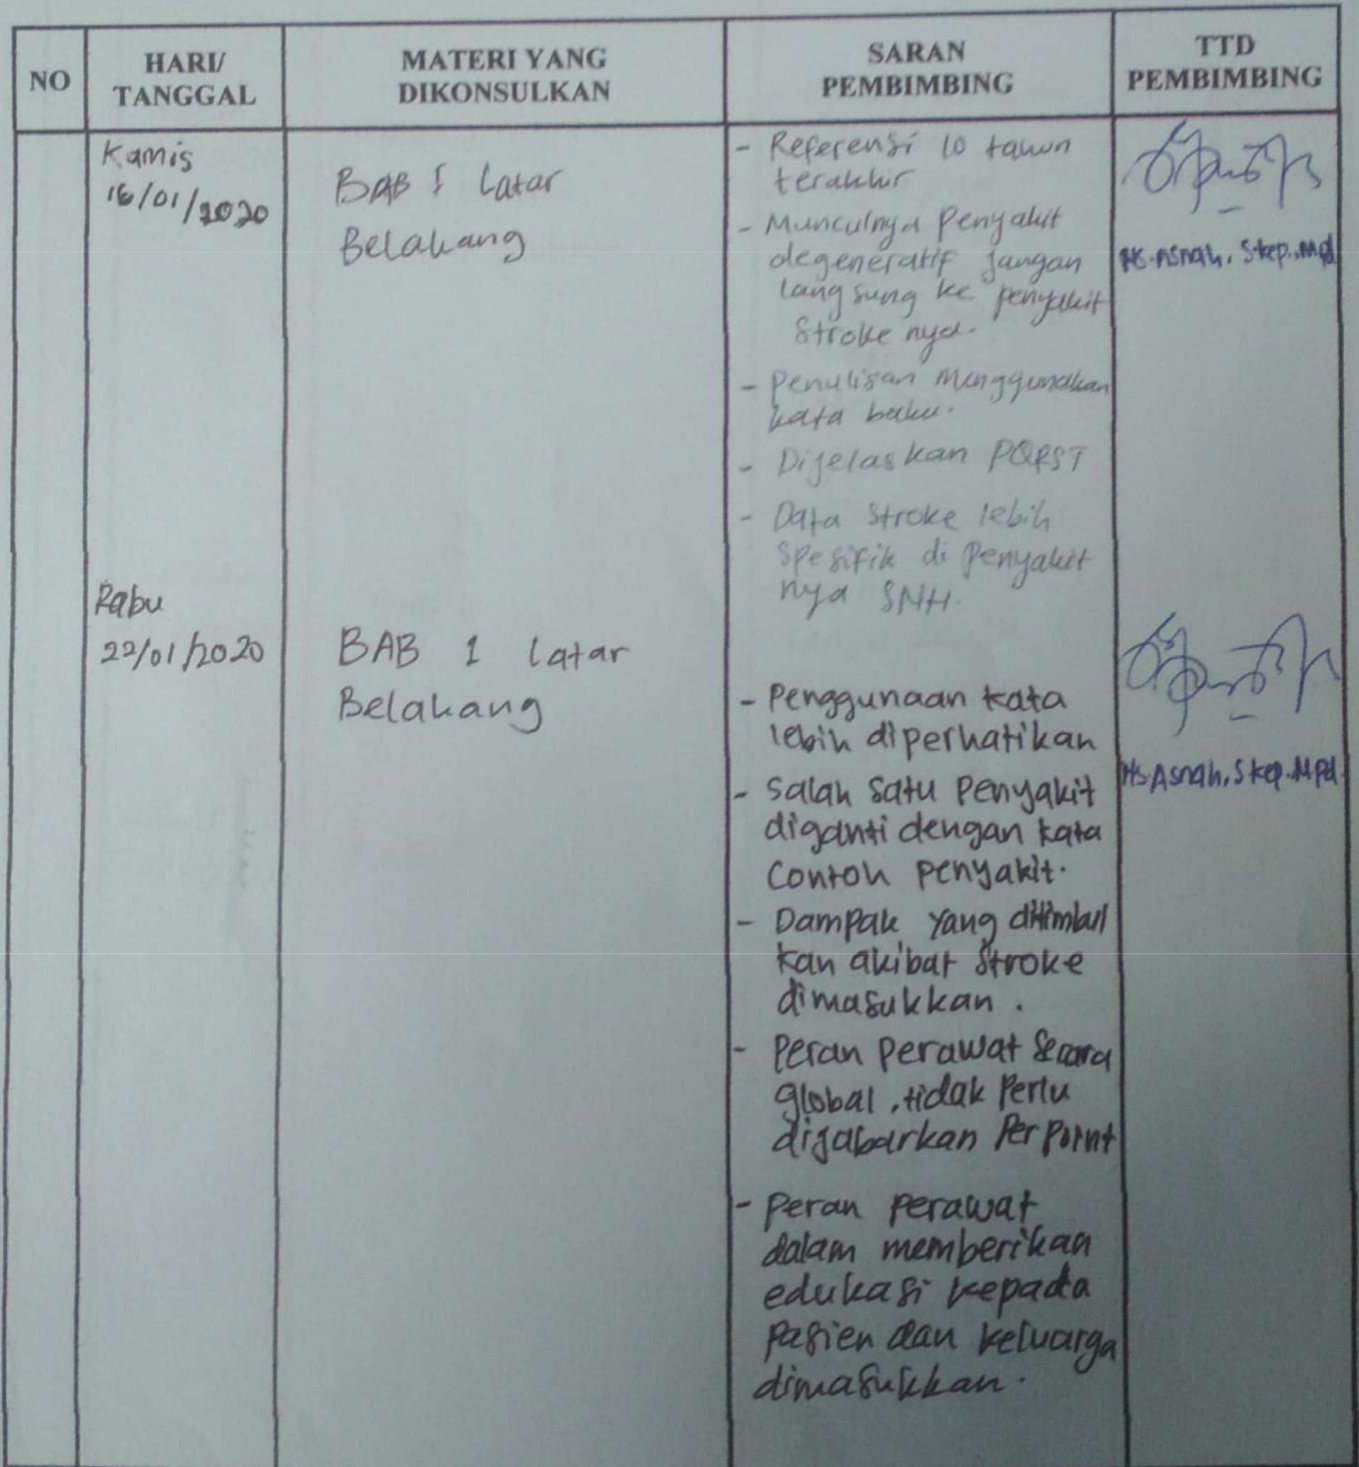 NO
HARI/
TANGGAL
MATERI YANG
DIKONSULKAN
SARAN
PEMBIMBING
TTD
PEMBIMBING
Kamis
16/01/2020
BAB I Latar
Belakang
- Referensi 10 tahun
terakhir
- Munculnya Penyakit
degeneratif jangan
langsung ke penyakit
Stroke nya.
- Penulisan menggunakan
kata baku.
- Dijelaskan PQRST
- Data Stroke lebih
Spesifik di Penyakit
nya SNH.
Ns. Asnah, Skep., Mpd
Rabu
22/01/2020
BAB 1 Latar
Belakang
- Penggunaan kata
lebih diperhatikan
- Salah Satu Penyakit
diganti dengan kata
Contoh Penyakit.
- Dampak Yang ditimbul
kan akibat Stroke
dimasukkan.
- Peran Perawat Secara
global, tidak Perlu
dijabarkan Per Point
- Peran Perawat
dalam memberikan
edukasi kepada
Pasien dan keluarga
dimasukkan.
Ns. Asnah, Skep. Mpd